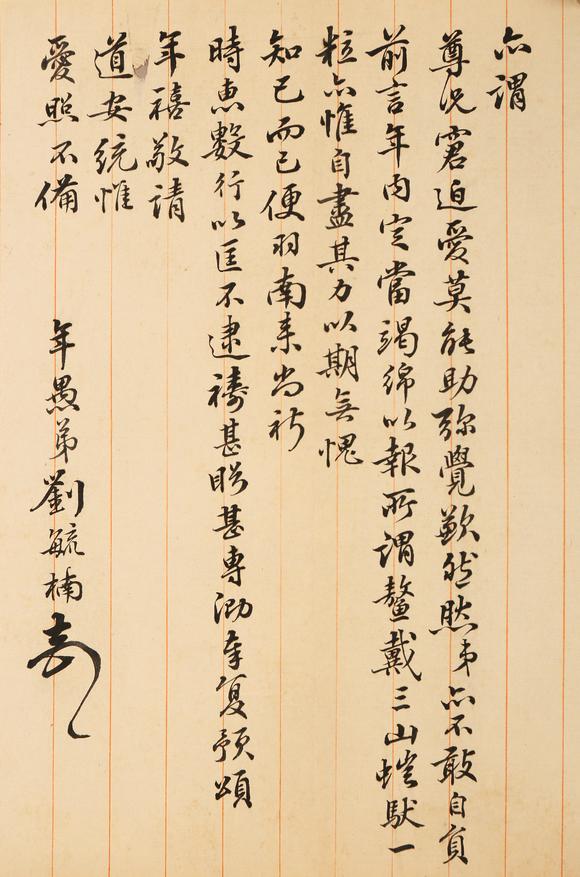 亦謂
尊況窘迫愛莫能助彌覺歉然然弟亦不敢自負
前言年內定當竭綿以報所謂鰲戴三山蟻馱一
粒亦惟自盡其力以期無愧
知己而已便羽南來尚祈
時惠數行以匡不逮禱甚盼甚專泐奉复預頌
年禧敬請
道安統惟
愛照不備
年愚弟劉毓楠